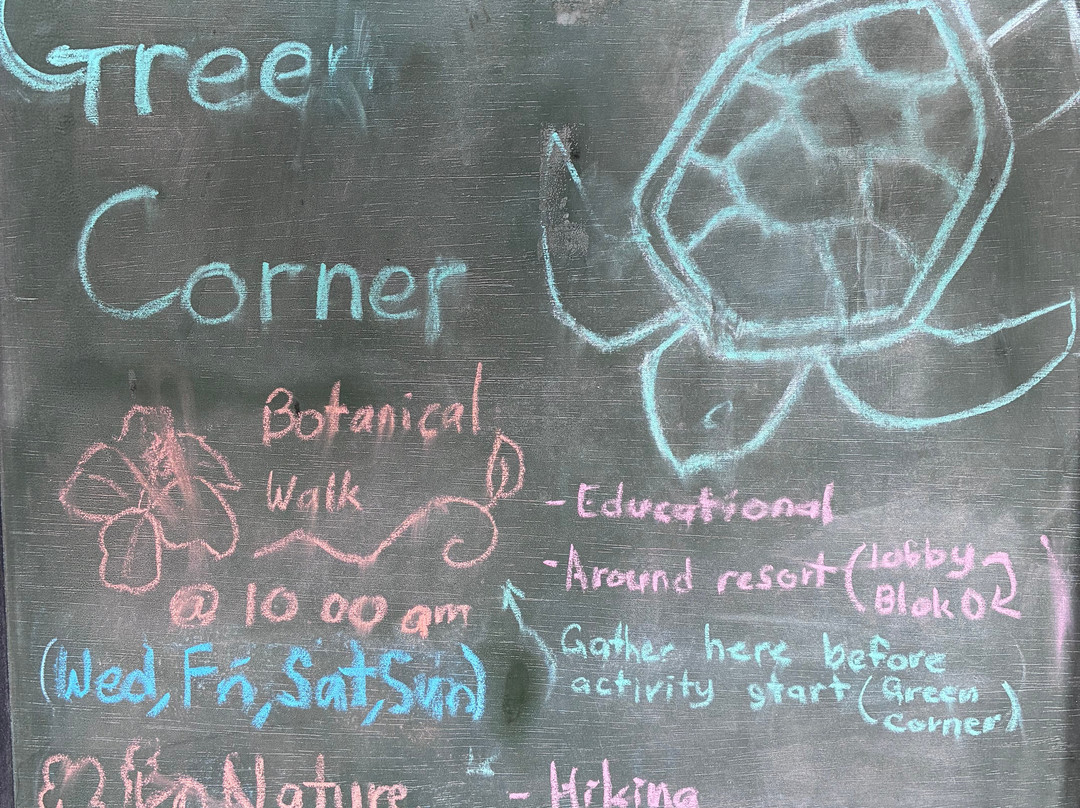 Green
Corner
Botanical
Walk
@ 10 00 am
(Wed, Fri, Sat, Sun)
- Educational
- Around resort (lobby
Blok D)
Gather here before
activity start (Green
Corner)
Nature
- Hiking